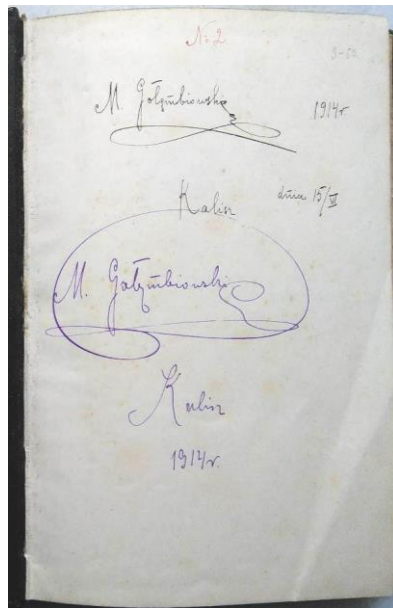 No 2
M. Gołembiowski 1914r.
Kalisz dnia 15/VI
M. Gołembiowski
Kalisz
1914r.